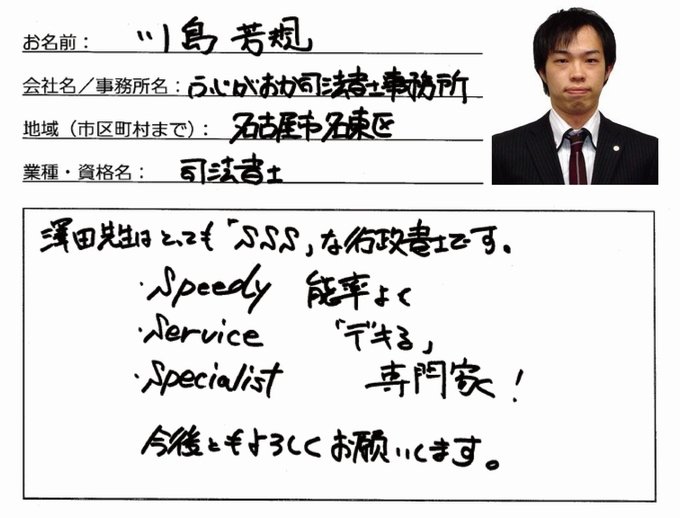 お名前： 川島 芳規
会社名／事務所名： ふじがおか司法書士事務所
地域（市区町村まで）： 名古屋市名東区
業種・資格名： 司法書士
澤田先生はとっても「SSS」な行政書士です。
・Speedy 能率よく
・Service 「デキる」
・Specialist 専門家！
今後ともよろしくお願いします。